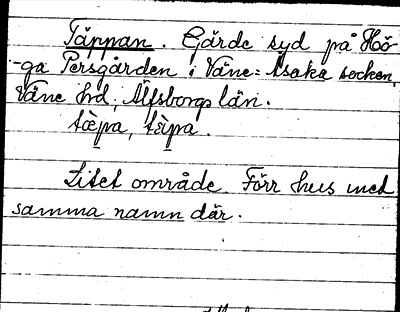 Täppan. Gärde syd på Höö-
ga Persgården i Väne-Åsaka socken,
Väne hd, Älfsborgs län.
tæpa, tæ̀pa.
Litet område. Förr hus med
samma namn där.